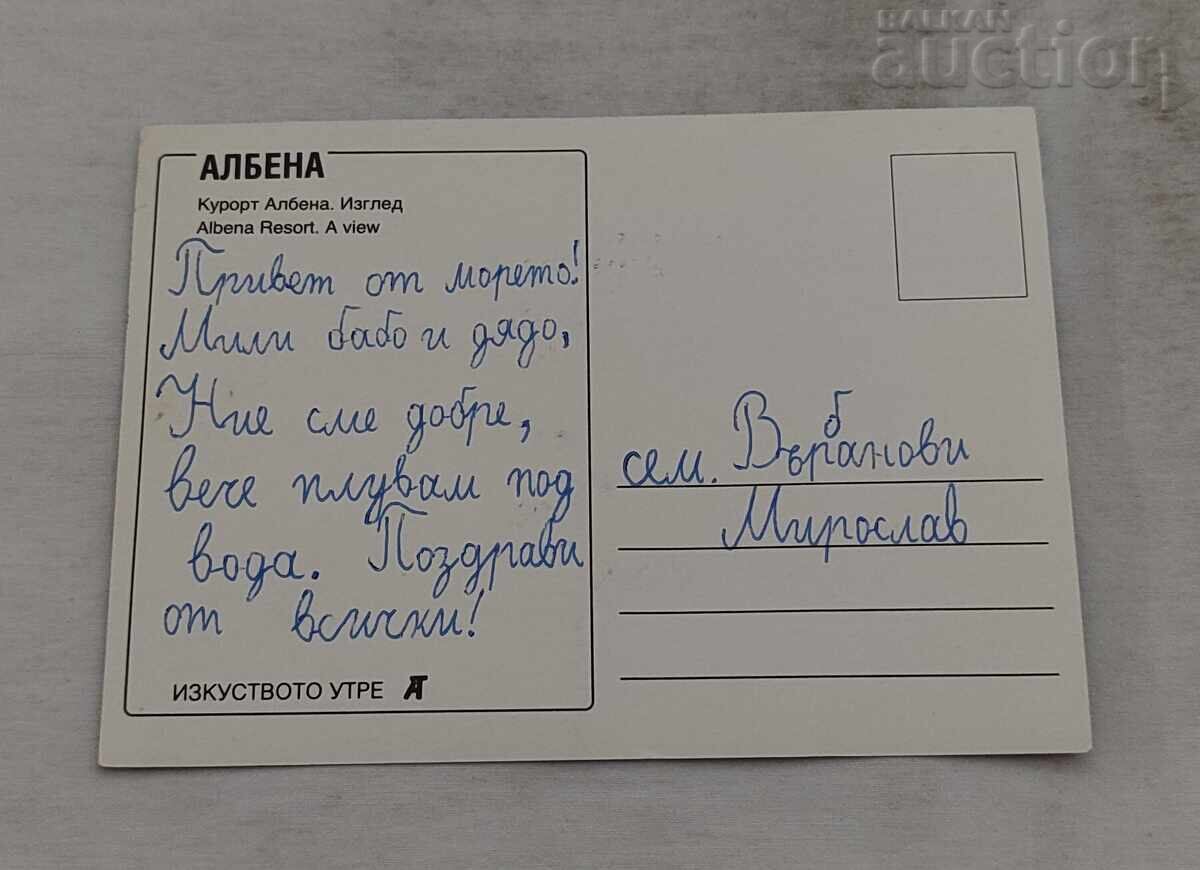 BALKAN
auction
АЛБЕНА
Курорт Албена. Изглед
Albena Resort. A view
Привет от морето!
Мили бабо и дядо,
Ние сме добре,
вече плувам под
вода. Поздрави
от всички!
ИЗКУСТВОТО УТРЕ
сем. Върбанови
Мирослав